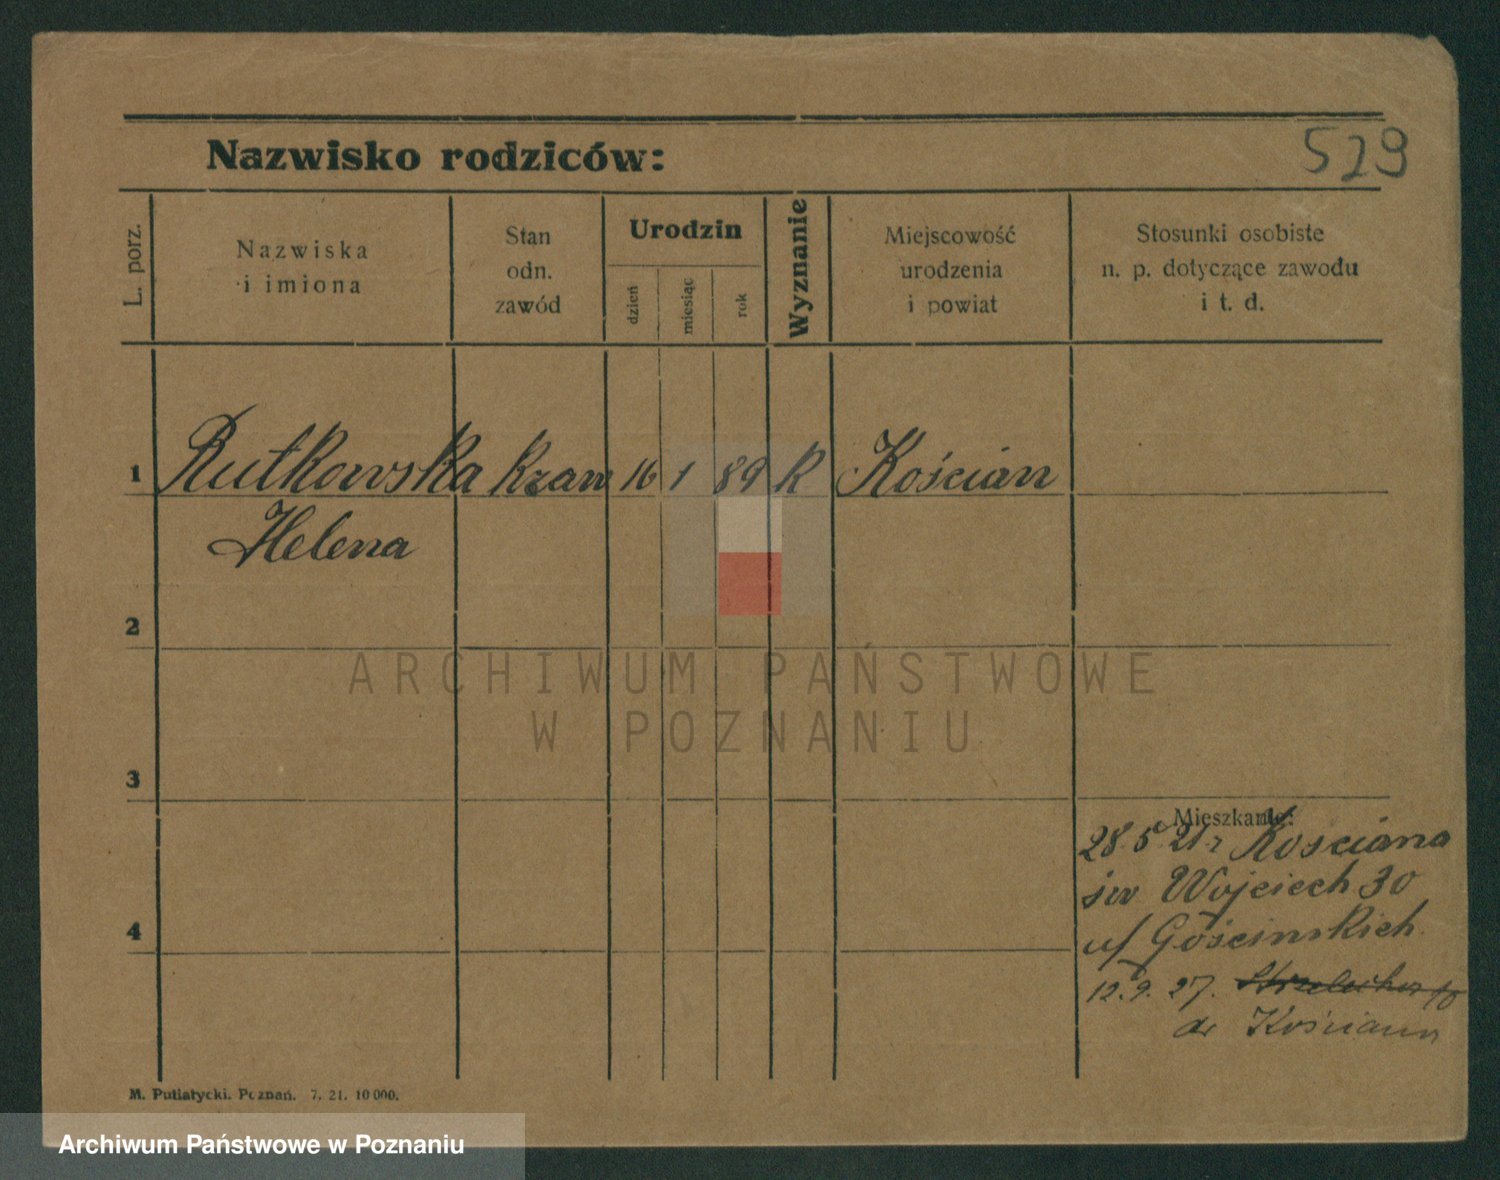 Nazwisko rodziców:
529
L. porz.
Nazwiska
i imiona
Stan
odn.
zawód
Urodzin
dzień
miesiąc
rok
Wyznanie
Miejscowość
urodzenia
i powiat
Stosunki osobiste
n. p. dotyczące zawodu
i t. d.
1 Rutkowska kraw 16 1 89 k Kościan
Helena
2
ARCHIWUM PAŃSTWOWE
W POZNANIU
3
Mieszkanie:
28 5 21 r Kościana
św Wojciech 30
u/ Gościnskich
4
12.9.27.
do Kościana
M. Putiatycki. Poznań. 7. 21. 10 000.
Archiwum Państwowe w Poznaniu